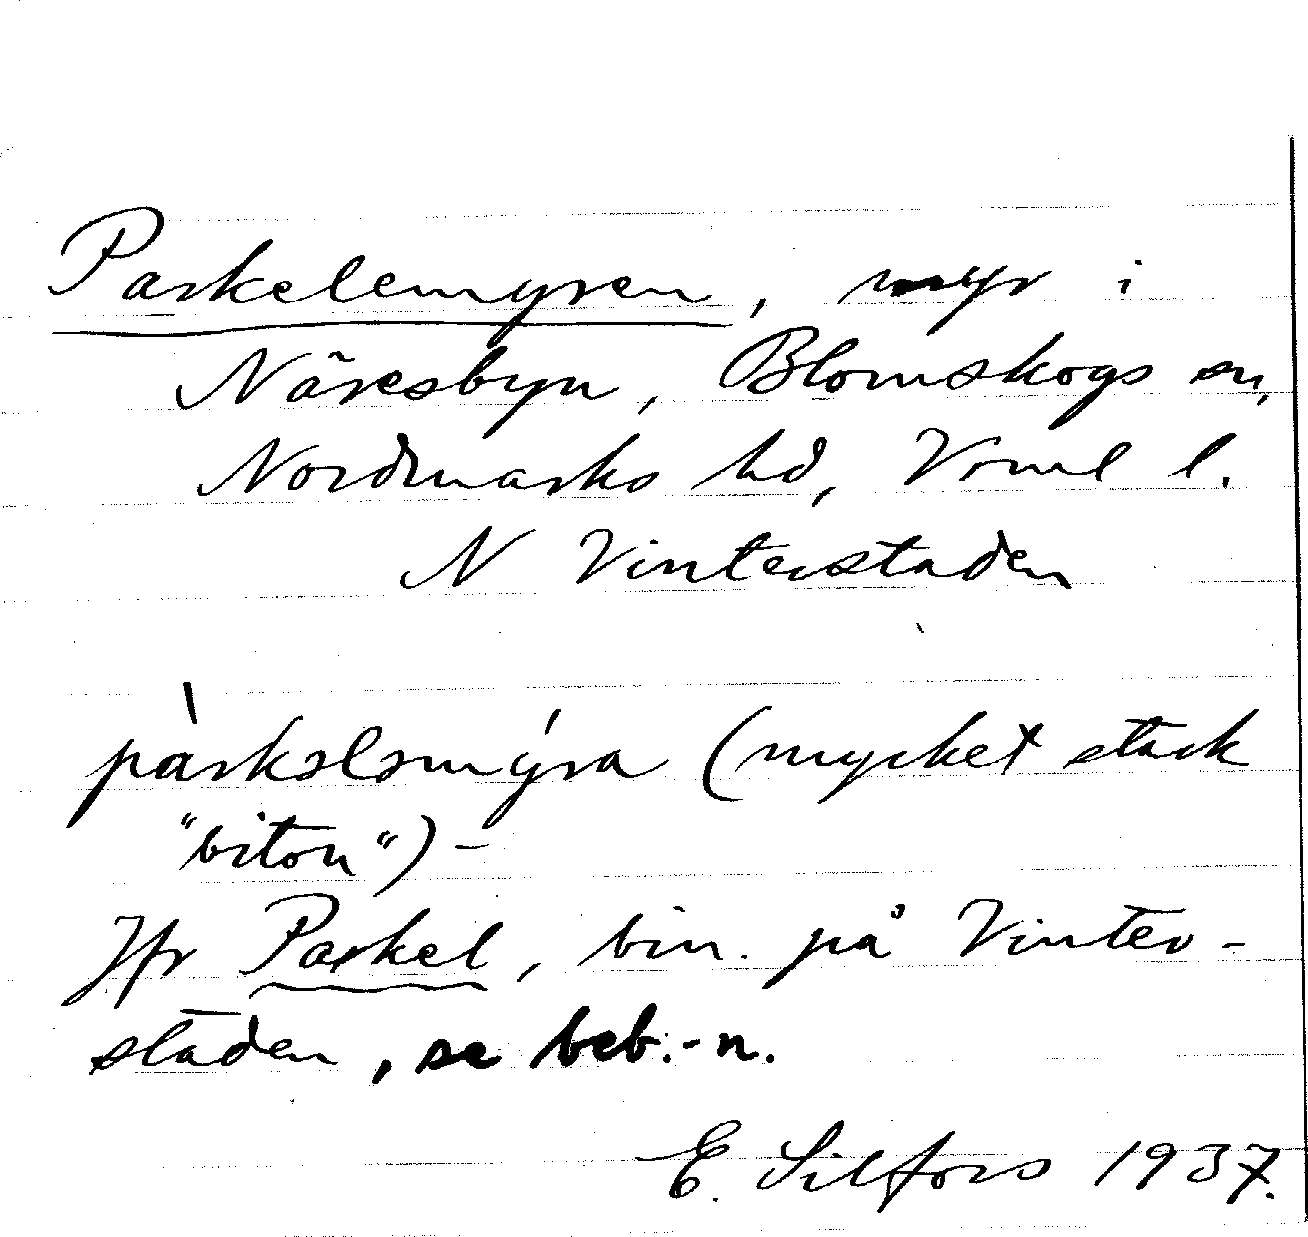 Parkelemyren, myr i
Näresbyn, Blomskogs sn,
Nordmarks hd, Vrml l.
N Vinterstaden
pàrkələmýra (mycket stark
"biton") -
Jfr Parkel, bin. på Vinter-
staden, se beb.-n.
E. Silfors 1937.